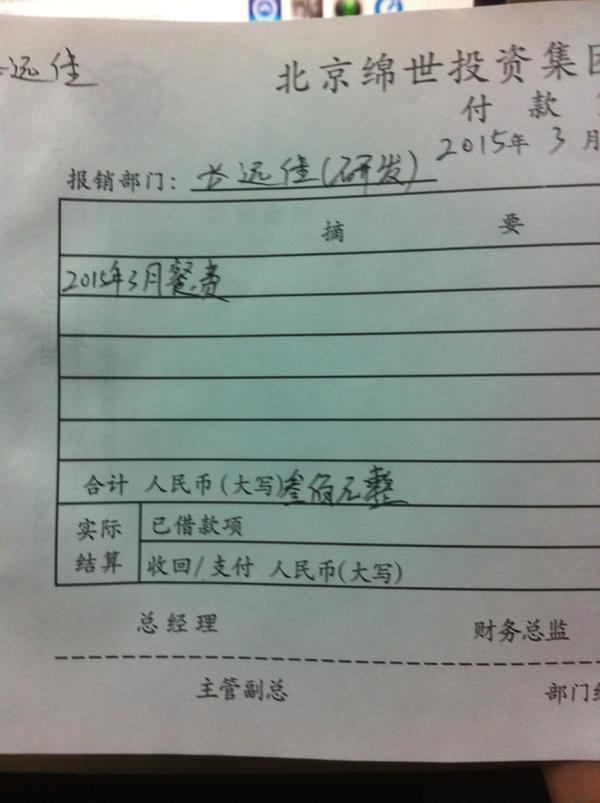 远佳
北京绵世投资集团
付 款
2015年 3 月
报销部门：长远佳(研发)
摘 要
2015年3月餐费
合计 人民币(大写)叁佰元整
实际结算
已借款项
收回/支付 人民币(大写)
总经理 财务总监
主管副总 部门